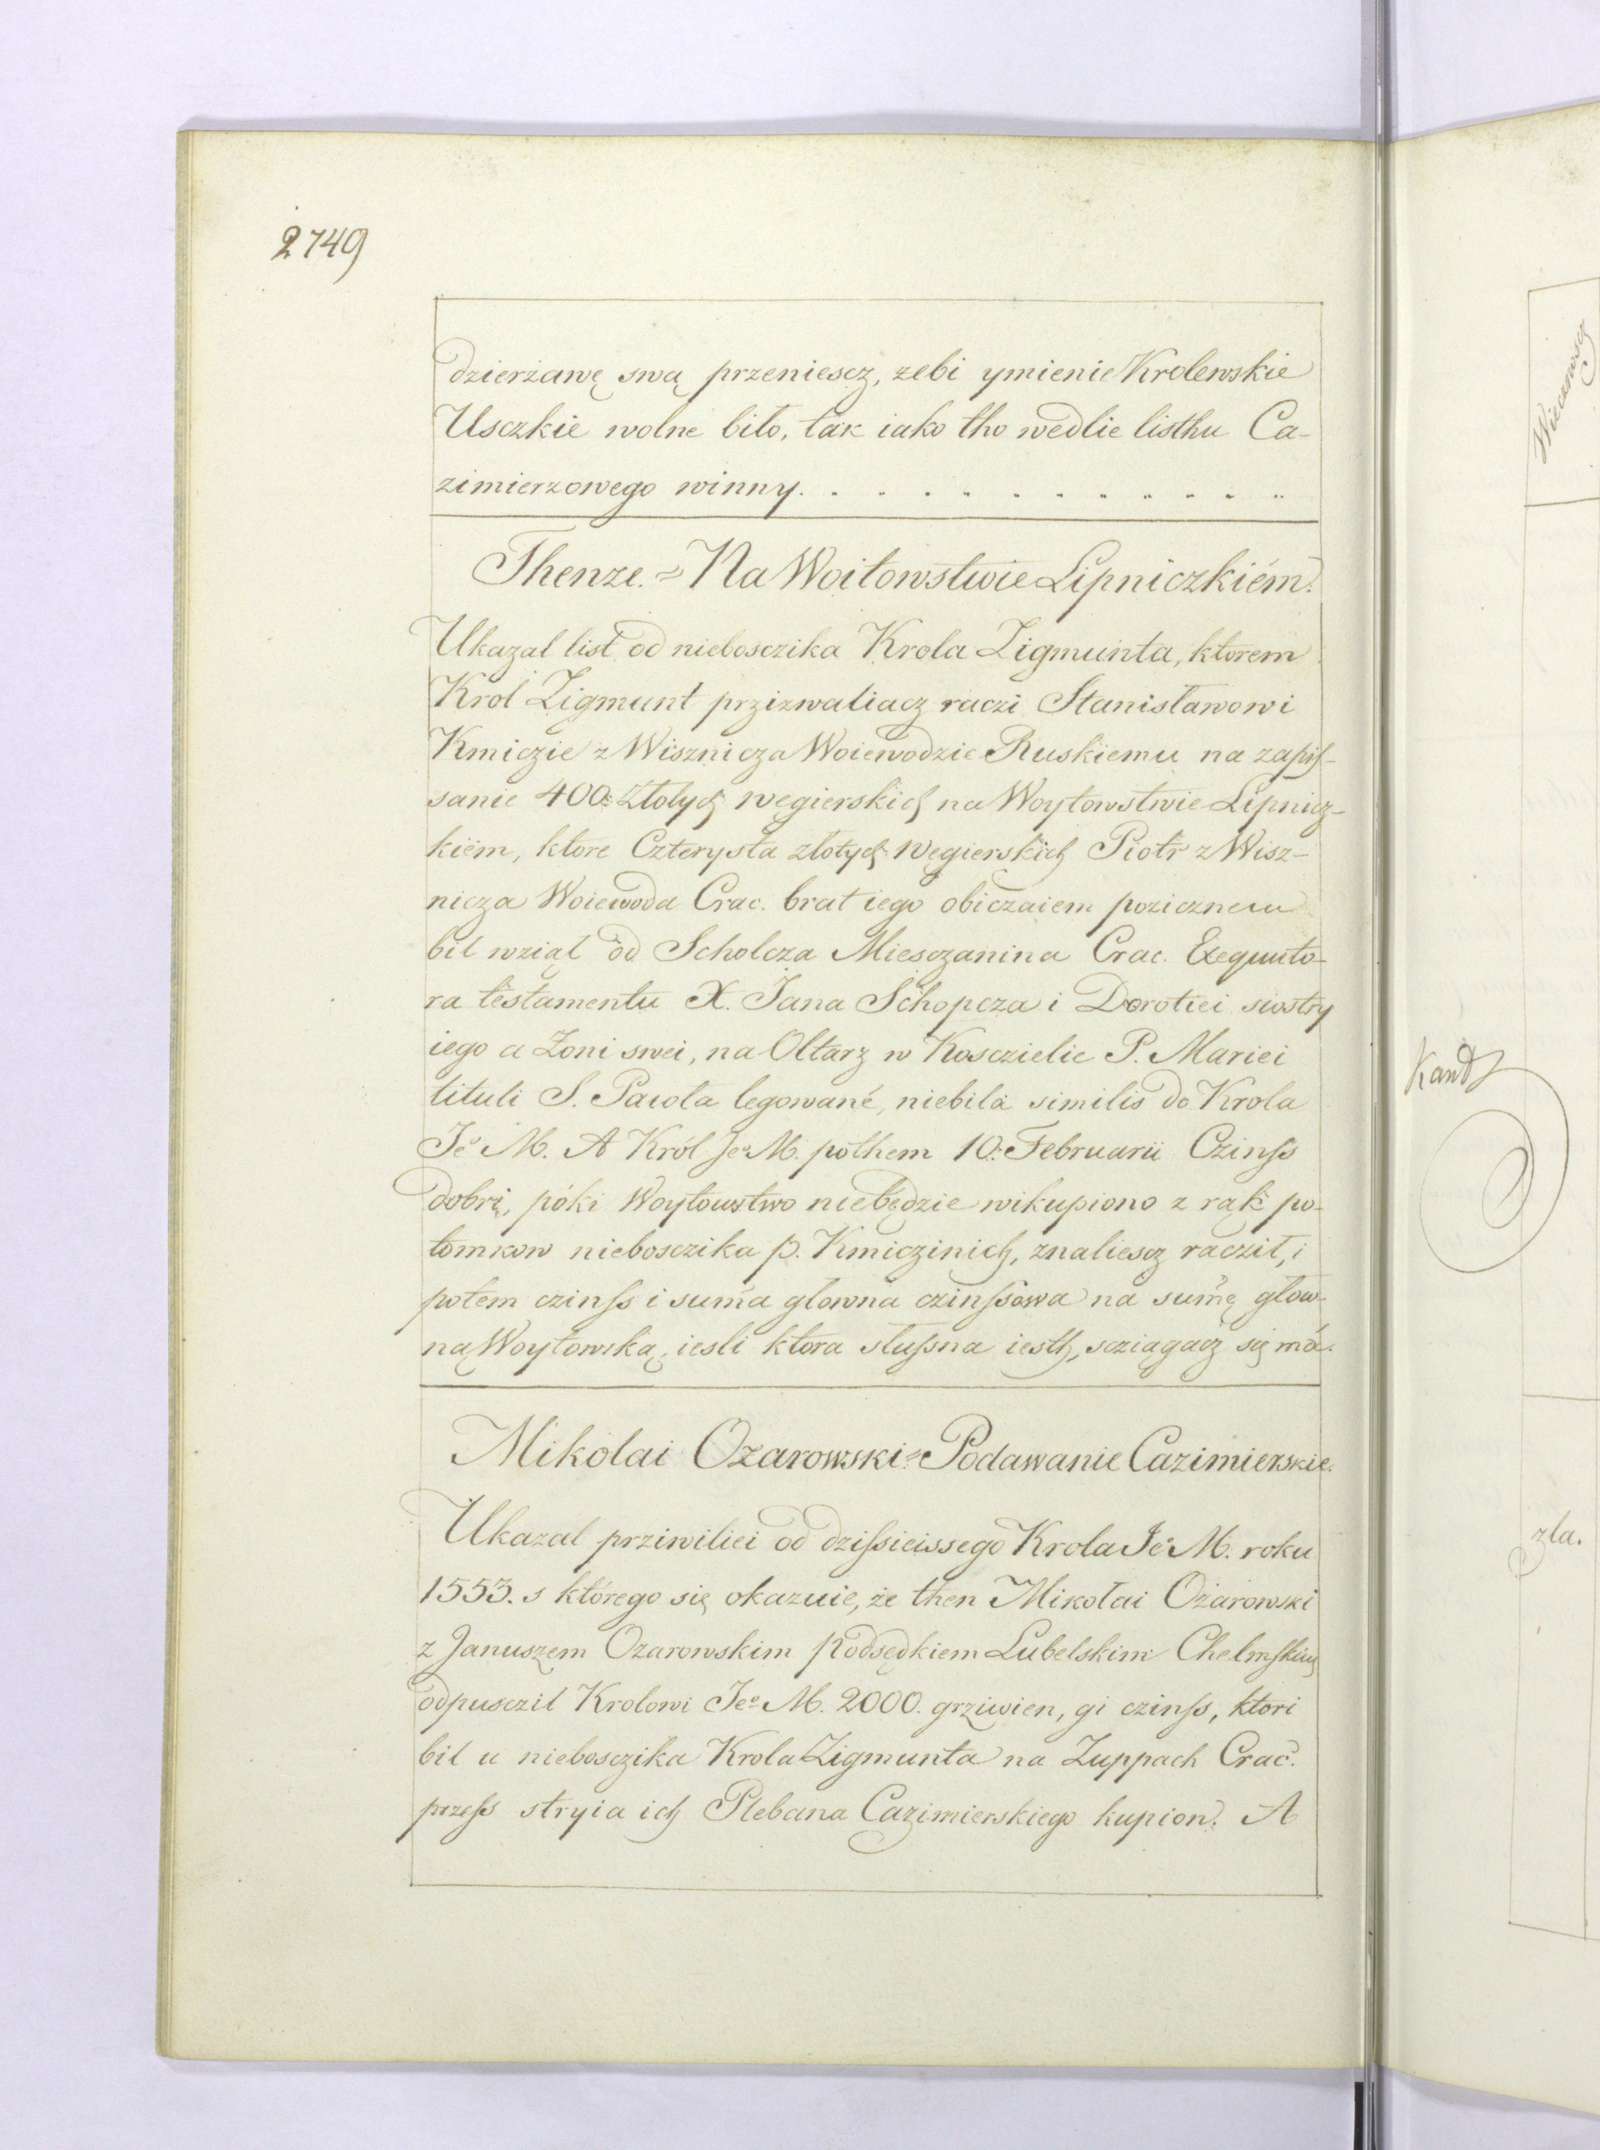 2749
dzierżawę swą przeniescz, zebi ymienie Krolewskie
Usczkie wolne biło, tak iako tho wedlie listhu Ca-
zimierzowego winny. . . . . . . . . . . .
Thenze. = Na Woitowstwie Lipniczkiém.
Ukazal list od nieboszczika Krola Zigmunta, ktorem
Krol Zigmunt przizwaliacz raczi Stanisławowi
Kmiczie z Wisznicza Woiewodzie Ruskiemu na zapiſ-
sanie 400: Złotych węgierskich na Woytowstwie Lipnicz-
kiém, ktore Czterysta złotych węgierskich Piotr z Wisz-
nicza Woiewoda Crac. brat iego obiczaiem pozicznem
bil wziął od Scholcza Miesczanina Crac. Exequuto-
ra testamentu X. Jana Schopcza i Dorotiei siostry
iego a Zoni swei, na Ołtarz w Kosczielie P. Mariei
tituli S. Pawla legowané, niebila similis do Krola
Je M. A Król Jeo M. pothem 10: Februarii Czinſs
dobri, póki Woytowstwo niebędzie wikupiono z rąk po-
tomkow nieboszczika p. Kmiczinich, znaliescz racził, i
potem czinſs i suma glowna czinſsowa na sumę głow-
ną Woytowską, iesli ktora sluſsna iesth, sciągacz się má.
Mikolai Ozarowski = Podawanie Cazimierskie.
Ukazal prziwiliei od dziſsieissego Krola Je M. roku
1553. s którego się okazuie, że then Mikołai Ożarowski
z Januszem Ozarowskim Podsędkiem Lubelskim Chelmſkim
odpusczil Krolowi Jeo M. 2000. grziwien, gi czinſs, ktori
bil u nieboszczika Krola Zigmunta na Zuppach Crac.
przeſs stryia ich Plebana Cazimierskiego kupion. A
zla.